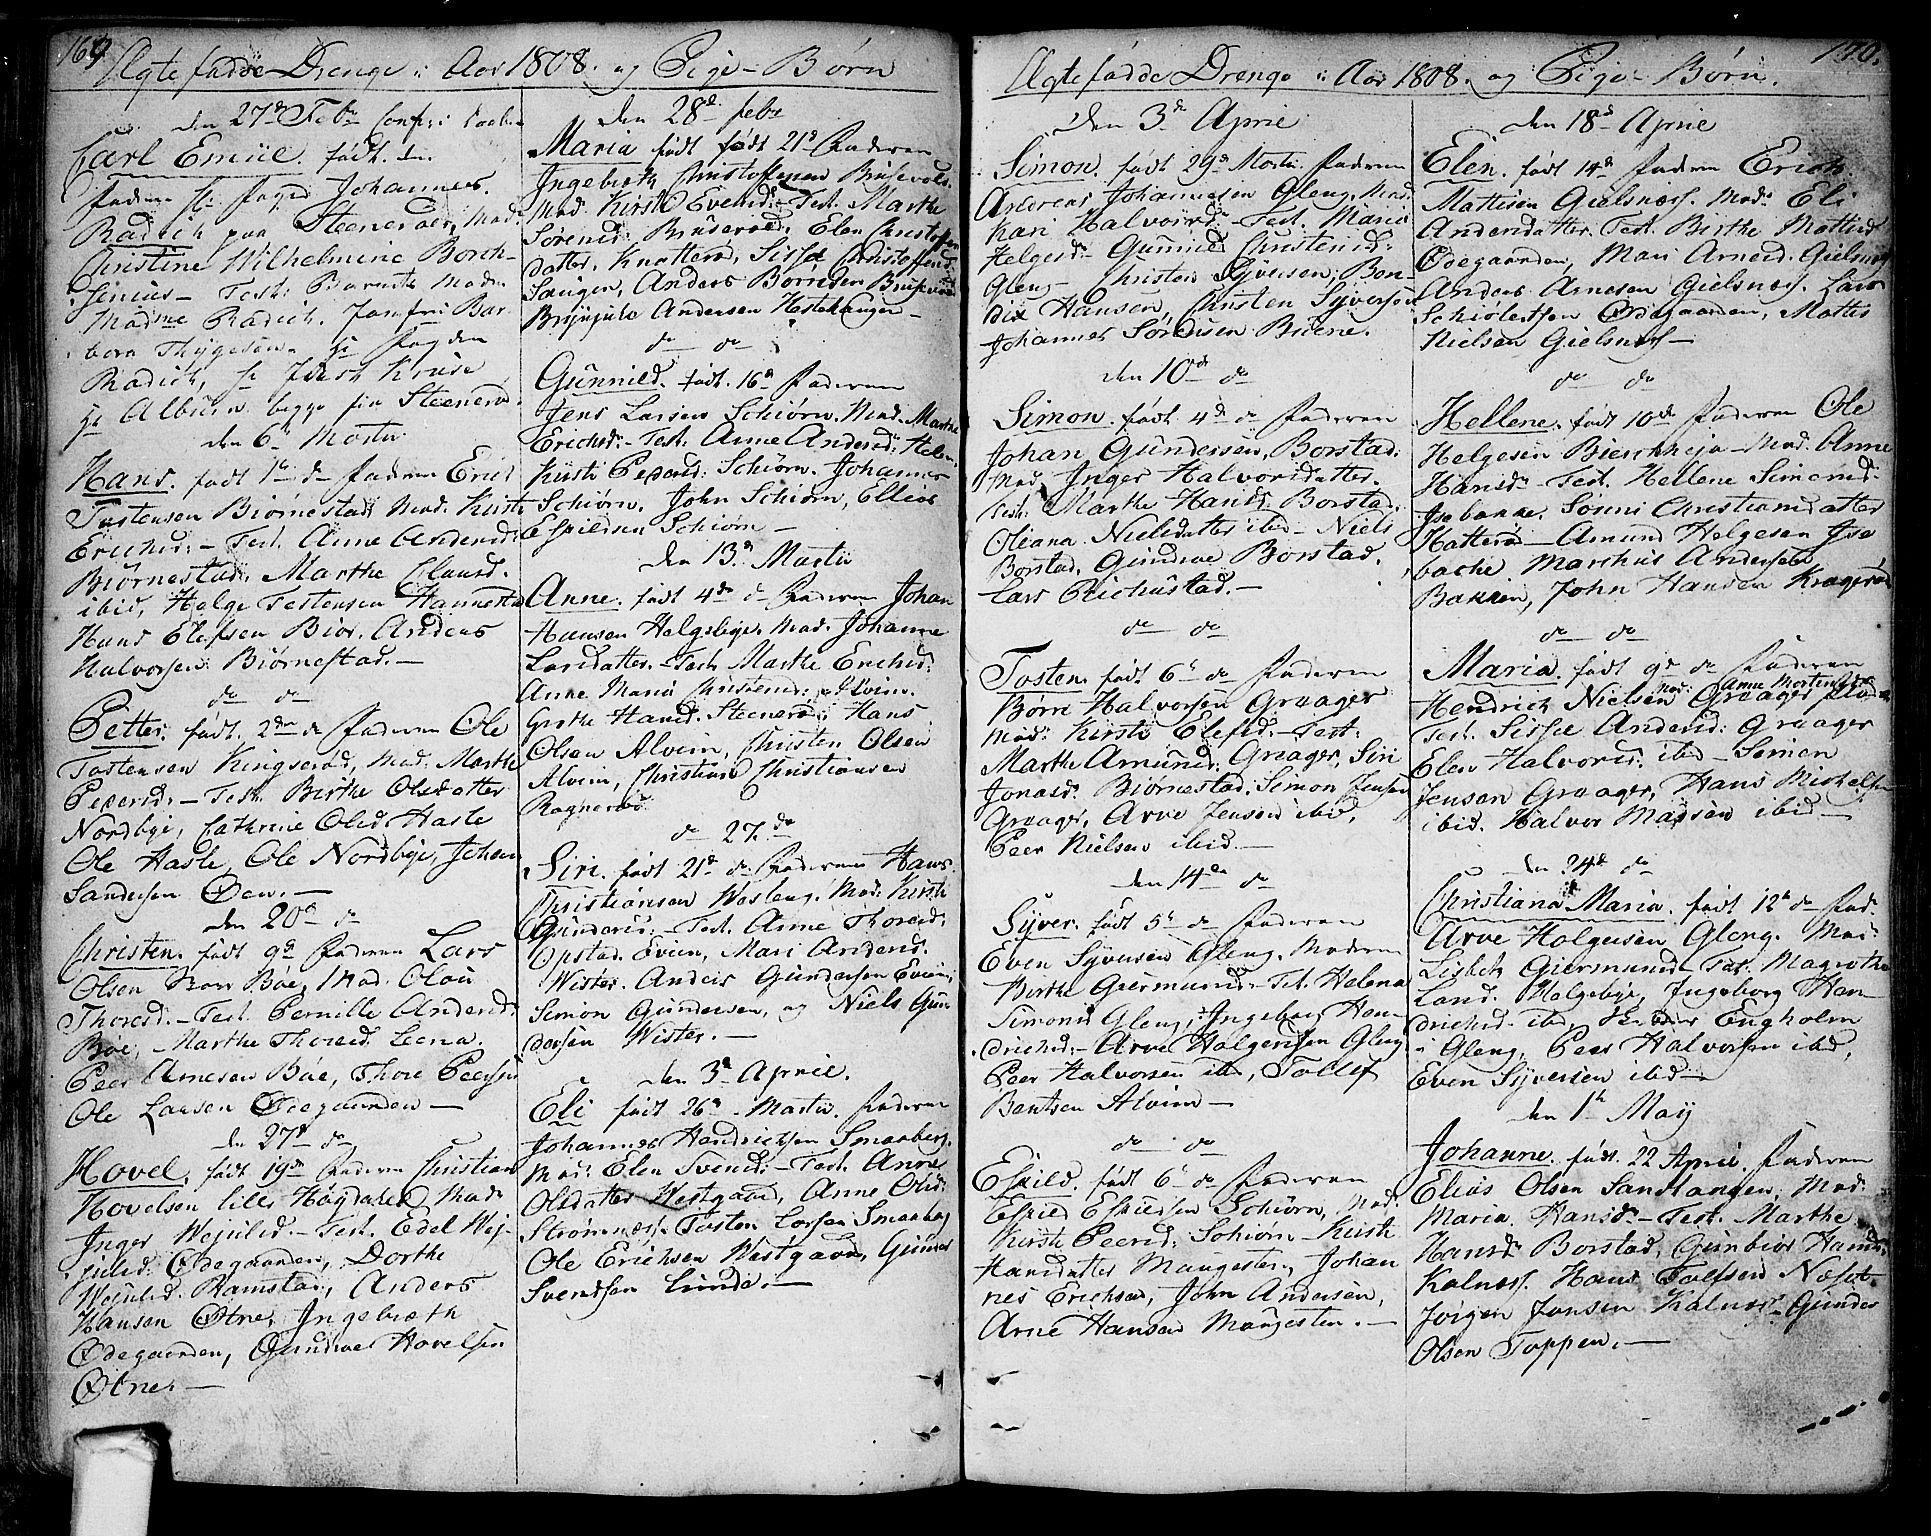 169
Ægte fødde Drenge i Aar 1808. og Pige-Børn
den 27de Feb.
Carl Emiil. født. den
Faderen Johannes
Radich paa Steenerød, Mod.
Christine Wilhelmine Borch-
senius - Test:
Madme Radich. Jomfru Bar
bora Thygesen.
Radich, Hr Kruse
Hr Albsün begge fra Steenerød.
den 6te Martii
Hans. født 1te do Faderen Erich
Tostensen Biørnestad, Mod. Kirsti
Erichsd: - Test. Anne Andersd:
Biørnestad. Marthe Clausd.
ibid, Helge Tostensen Hannestad
Hans Elefsen Biør. Anders
Halvorsen Biørnestad. -
do do
Petter: født. 2den do Faderen Ole
Tostensen Kingserød, Mod: Marthe
Pedersd: - Test. Birthe Olsdatter
Nordbye, Cathrine Olsd. Hasle
Ole Hasle, Ole Nordbye, Johan
Sandersen Øen. -
den 20de do
Christen. født 9de Faderen Lars
Olsen Bøe, Mod. Oloü
Thoresd: - Test. Pernille Andersd:
Bøe, Marthe Thoresd. Leena.
Peer Arnesen Bøe, Thore Peersen
Ole Larsen Ødegaarden -
den 27de do
Hovel, født 19de Faderen Christian
Hovelsen lille Høgdahl, Mod:
Inger Wejulsd. - Test. Edel Wej-
julsd: Ødegaarden, Dorthe
Wejulsd. Ramstad, Anders
Hansen Øtne, Ingebreth
Ødegaarden, Gundvel Hovelsen
Øtne. -
den 28de febr
Maria født født 21de Faderen
Ingebreth Christoffersen Brüsevold.
Mod. Kirsti Evensd: - Test. Marthe
Sørensd: Brüserød. Elen Christoffer
datter. Knatterød, Sissel Christoffersd:
Saugen, Anders Børresen Brüsevold
Brynjulv Andersen Hestehaugen -
do do
Günnild. født. 16de Faderen
Jens Larsen Schiørn. Mod. Marthe
Erichsd: - Test. Anne Andersd: Holm,
Kirsti Pedersd: Schiørn. Johannes
Schiørn. John Schiørn, Ellevs
Espildsen Schiørn -
den 13de Martii
Anne. født 4de do Faderen Johan
Hansen Helgebye. Mod. Johanne
Larsdatter. - Test. Marthe Erichsd:
Anne Maria Christensd: Alvim.
Grethe Hansd. Steenerød: Hans
Olsen Alvim, Christen Olsen
Alvim, Christian Christiansen
Ragnerød.
do 27. do
Siri. født 21de do Faderen Hans.
Christiansen Wasleng. Mod: Kirsti
Gündersd: - Test. Anne Thoresd:
Opstad. Evien, Mari Andersd.
Wister. Anders Gündersen Evien;
Simon Gündersen, og Niels Gün
dersen Wister. -
den 3de April.
Eli født 26de Martii. Faderen
Johannes Handrichsen Smaaberg.
Mod: Elen Svensd: - Test. Anne
Olsdatter Westgaard, Anne Olsd:
Strømnæss. Tosten Larsen Smaaberg
Ole Erichsen Westgaard, Günner
Svendsen Lunde. -
170.
Ægte fødde Drenge i Aar 1808. og Pige-Børn.
Den 3de Aprie
Simon. født 29de Martii. Faderen
Andreas Johannesen Gleng, Mod.
Kari Halvorsd. - Test. Maria
Helgesd: Gunnild Christensd:
Gleng - Christen Syversen, Ben-
dix Hansen, Christen Syversen
Johannes Sørensen Büene.
den 10de do
Simon. født 4de do Faderen
Johan Gündersen, Borstad.
Mod. Inger Halvorsdatter.
Test. Marthe Hansd: Borstad,
Oliana Nielsdatter ibid - Niels
Borstad, Gündroe Borstad,
Lars Richustad. -
do do
Tosten. født 6te do Faderen
Børri Halvorsen Graager
Mod: Kirsti Elefsd. - Test:
Marthe Amünd. Graager, Siri
Jonasd. Biørnestad, Simon Jensen
Graager, Arve Jensen ibid.
Peer Nielsen ibid. -
den 14de do
Syver. født 5te do Faderen
Even Syversen Gleng. Moderen
Birthe Giermund: - Test. Helena
Simonsd Gleng, Ingebor Hen-
drichsd: - Arve Holgersen Gleng
Peer Halvorsen ibid, Tollef
Bentsen Alvim -
do do
Eskild. født 6te do Faderen
Eskild Eskildsen Schiørn, Mod:
Kirsti Peersd: Schiørn - Kirsti
Hansdatter Maugesten, Johan
nes Erichsen, John Andersen,
Arne Hansen Maugesten. -
den 18de Aprie
Elen. født 14de Faderen Erich
Mathisen Gielsnæss. Mod: Eli
Andersdatter. Test. Birthe Mattisd
Ødegaarden, Mari Arnesd. Gielsnæs
Anders Arnesen Gielsnæs. Lars
Schiølertsen Ødegaarden, Mattis
Nielsen Gielsnæss -
do do
Hellene. født 10de Faderen Ole
Helgesen Bierchheja - Mod. Anne
Hansd. Test. Hellene Simensd:
Isebakke. Sønni Christiansdatter
Hatterø - Amund Helgesen Ise
bache. Marchus Andersen
Bakken, John Hansen Kragerøe
do do
Maria. født 9de do Faderen
Hendrich Nielsen Graager Mod: Anne Mortensd.
Test. Sissel Andersd: Graager
Elen Halvorsd: ibid - Simen
Jensen Graager, Hans Michelsen
ibid. Halvor Madsen ibid -
den 24de do
Christiana Maria. født 12te do Fad.
Arve Holgersen Gleng. Mod:
Lisbeth Giermund - Test. Magrethe
Land. Helgebye, Ingeborg Hen-
drichsd. ibid, Engholm
i Gleng, Peer Halvorsen ibid,
Even Syversen ibid -
den 1te May
Johanne. født. 22 April. Faderen
Elias Olsen Sandtangen, Mod:
Maria Hansd. - Test. Marthe
Hansd. Borstad, Gunbior Hansd.
Kalnæss. Hans Tolfsen Næset.
Jørgen Jensen Kalnæs. Gunder
Olsen Toppen. -